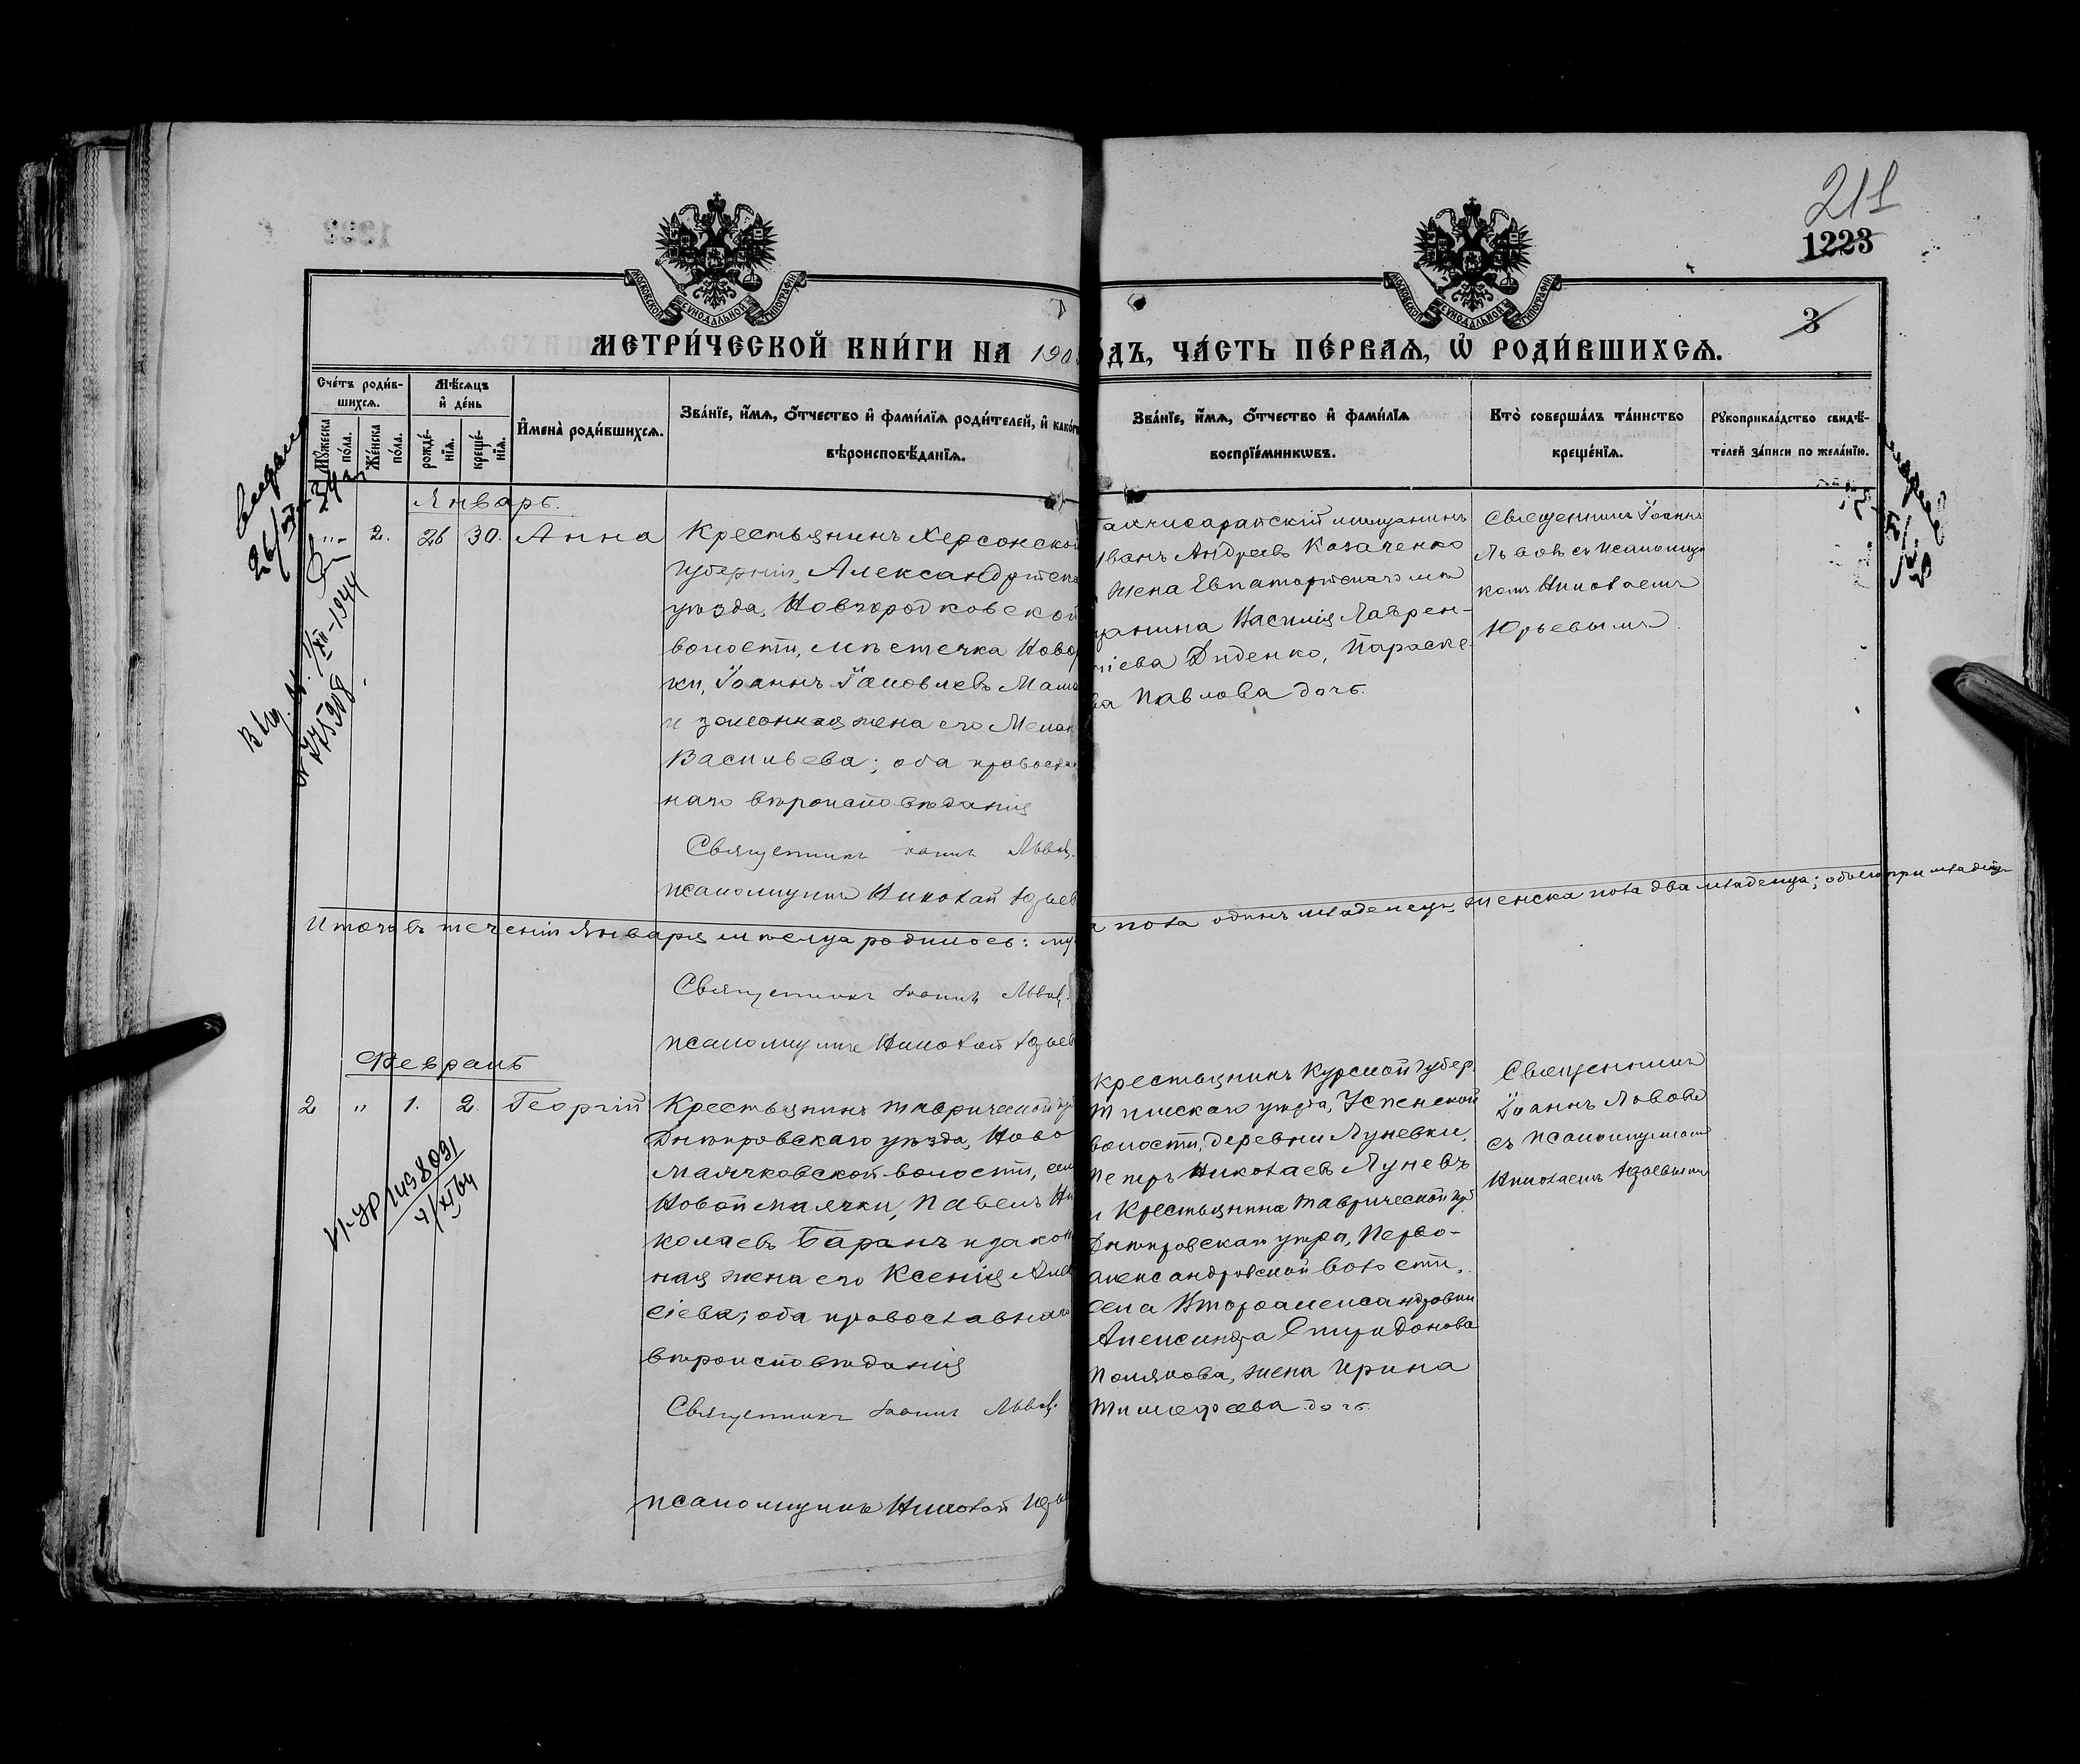 211
1223
3
МОСКОВСКОЙ СѴНОДАЛЬНОЙ ТИПОГРАФІИ
МОСКОВСКОЙ СѴНОДАЛЬНОЙ ТИПОГРАФІИ
МЕТРИ́ЧЕСКОЙ КНИ́ГИ НА 190
ОДЪ, ЧА́СТЬ ПЕ́РВАѦ, Ѽ РОДИ́ВШИХСѦ.
Сче́тъ роди́в-
шихсѧ.
Мѣ́сѧцъ
и҆ де́нь
Мꙋ́жеска
по́ла.
Же́нска
по́ла.
рожде́-
нїѧ.
креще́-
нїѧ.
И҆мена̀ роди́вшихсѧ.
Зва́нїе, и҆́мѧ, ѻ҆́тчество и҆ фами́лїѧ роди́телей, и҆ како́гѡ
вѣроисповѣ́данїѧ.
Зва́нїе, и҆́мѧ, ѻ҆́тчество и҆ фами́лїѧ
воспрїе́мникѡвъ.
Кто̀ соверша́лъ та́инство
креще́нїѧ.
Рꙋкоприкла́дство свидѣ́-
телей за́писи по жела́нїю.
Январь.
"
2.
26
30.
Анна
Крестьянинъ Херсонской
губерніи, Александрійска
уѣзда, Новгородковской
волости, мѣстечка Новго
ки, Іоаннъ Іаковлевъ
и законная жена его
Васильева; оба православ
наго вѣроисповѣданія
Священникъ Іоаннъ Львовъ.
Псаломщикъ Николай Юрьев
ахчисарайскій мѣщанинъ
Іванъ Андреевъ Казаченко
жена Евпаторійскаго мѣ
щанина Василія Лаврен-
тіева Диденко, Параске-
ва Павлова дочь.
Священникъ Іоаннъ
Львовъ съ псаломщи
комъ Николаемъ
Юрьевымъ.
Итого въ теченіи Января мѣсяца родилось: му
а пола одинъ младенецъ, женска пола два младенца; обоего три младенца
Священникъ Іоаннъ Львовъ.
Псаломщикъ Николай Юрьев
Февраль
2
"
1.
2.
Георгій
Крестьянинъ Таврической гу
Днѣпровскаго уѣзда, Ново
Маячковской волости, сел
Новой Маячки, Павелъ Ни
колаевъ Баранъ и закон
ная жена его Ксенія Алек
сіева; оба православнаго
вѣроисповѣданія
Священникъ Іоаннъ Львовъ.
Псаломщикъ Николай Юрь
Крестьянинъ Курской губер.
Тимскаго уѣзда, Успенской
волости, деревни Луневки,
Петръ Николаевъ Луневъ
и Крестьянина Таврической губ
Днѣпровскаго уѣзда, Перво-
александровской волости,
села Второалександровки
Александра Спиридонова
Полякова, жена Ирина
Тимофеева дочь.
Священникъ
Іоаннъ Львовъ
съ псаломщикомъ
Николаемъ Юрьевымъ
1/XII-1944
775308
И-УР 1498091
4/XI 64